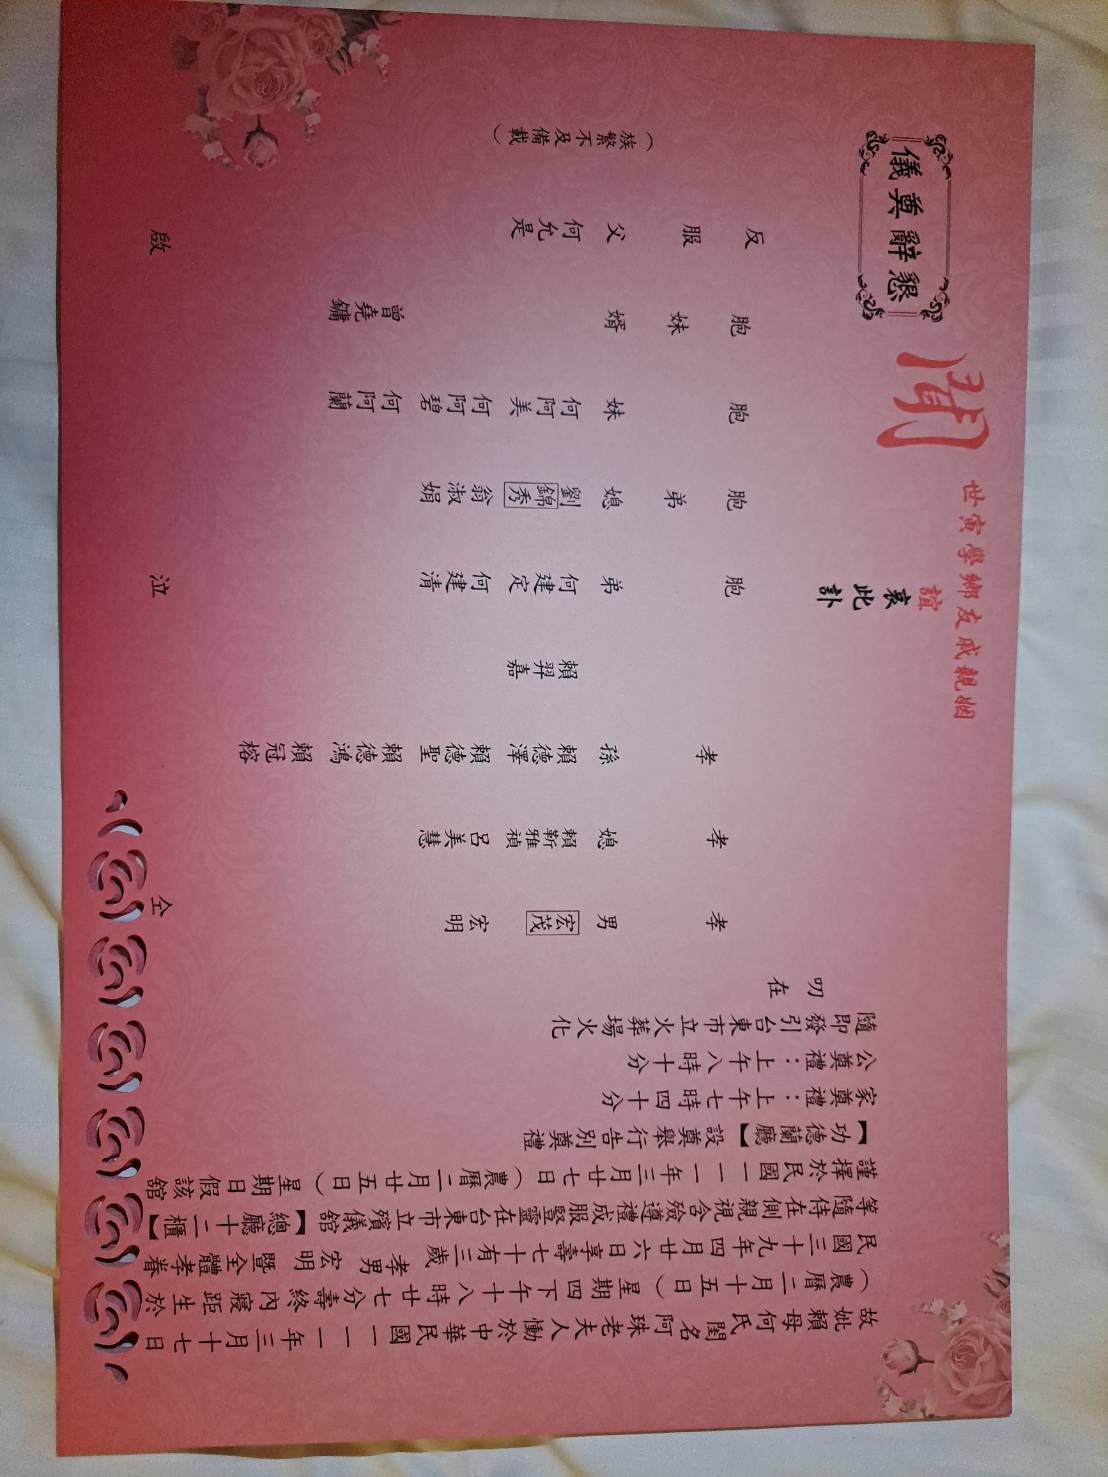 故妣賴母何氏閨名阿珠老夫人慟於中華民國一一一年三月十七日
（農曆二月十五日）星期四下午十八時廿七分壽終內寢距生於
民國三十九年四月廿六日享壽七十有三歲孝男宏明暨全體孝眷
等隨侍在側親視含殮遵禮成服豎靈在台東市立殯儀館【總廳十二櫃】
謹擇於民國一一一年三月廿七日（農曆二月廿五日）星期日假該館
【功德蘭廳】設奠舉行告別奠禮
家奠禮：上午七時四十分
公奠禮：上午八時十分
隨即發引台東市立火葬場火化
叨在
姻親戚友鄉學寅世
誼
哀此訃
聞
懇辭奠儀
孝男 宏茂 宏明
孝媳 賴靳雅禎 呂美慧
孝孫 賴德澤 賴德聖 賴德鴻 賴冠榕
賴羿嘉
胞弟 何建定 何建清
胞弟媳 劉錦秀 翁淑娟
胞妹 何阿美 何阿碧 何阿蘭
胞妹婿 曾堯鏞
反服父 何允是
（族繁不及備載）
仝泣啟